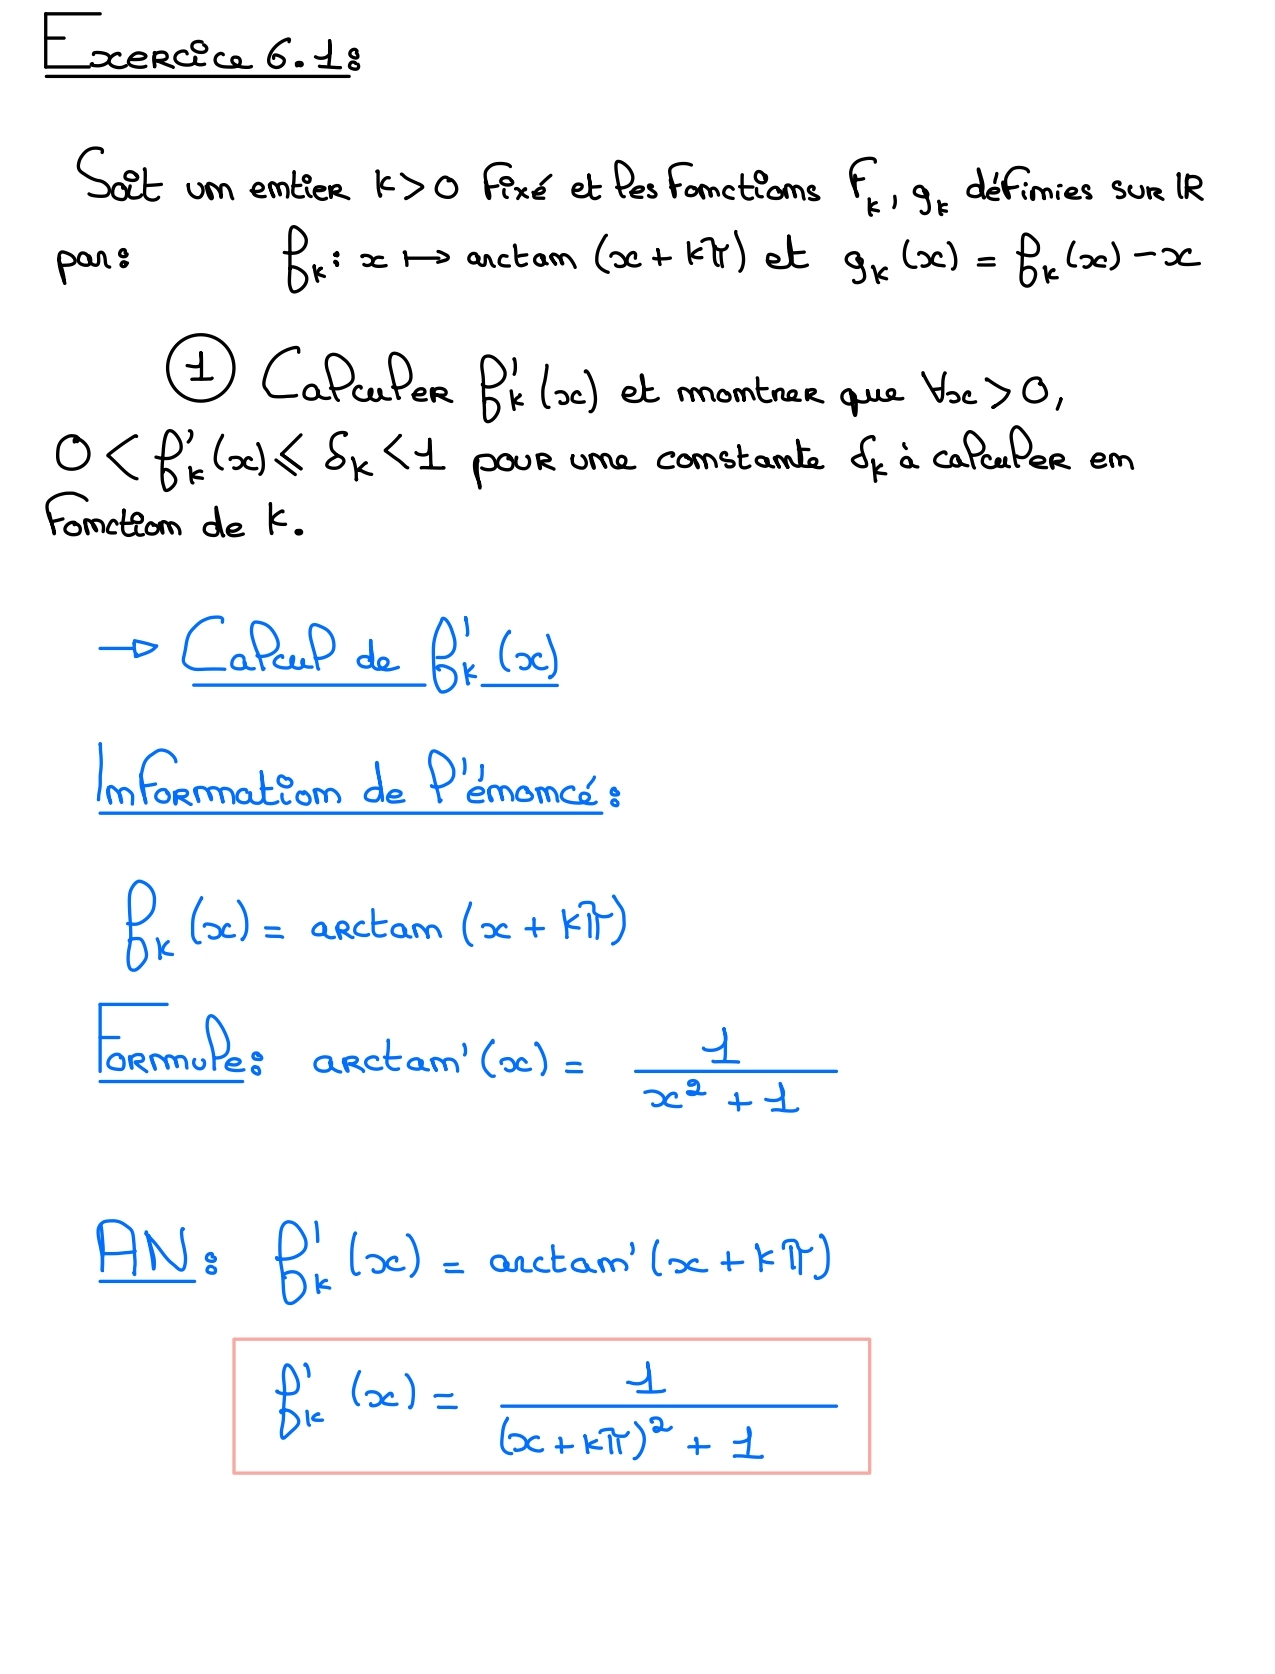 Exercice 6.1:
Soit un entier k>0 fixé et les fonctions f_k, g_k définies sur ℝ
par: f_k: x ⟼ arctan (x + kπ) et g_k (x) = f_k (x) - x
① Calculer f'_k (x) et montrer que ∀x > 0,
0 < f'_k (x) ⩽ δ_k < 1 pour une constante δ_k à calculer en
fonction de k.
→ Calcul de f'_k (x)
Information de l'énoncé:
f_k (x) = arctan (x + kπ)
Formule: arctan' (x) = 1 / (x² + 1)
AN: f'_k (x) = arctan' (x + kπ)
f'_k (x) = 1 / ((x + kπ)² + 1)